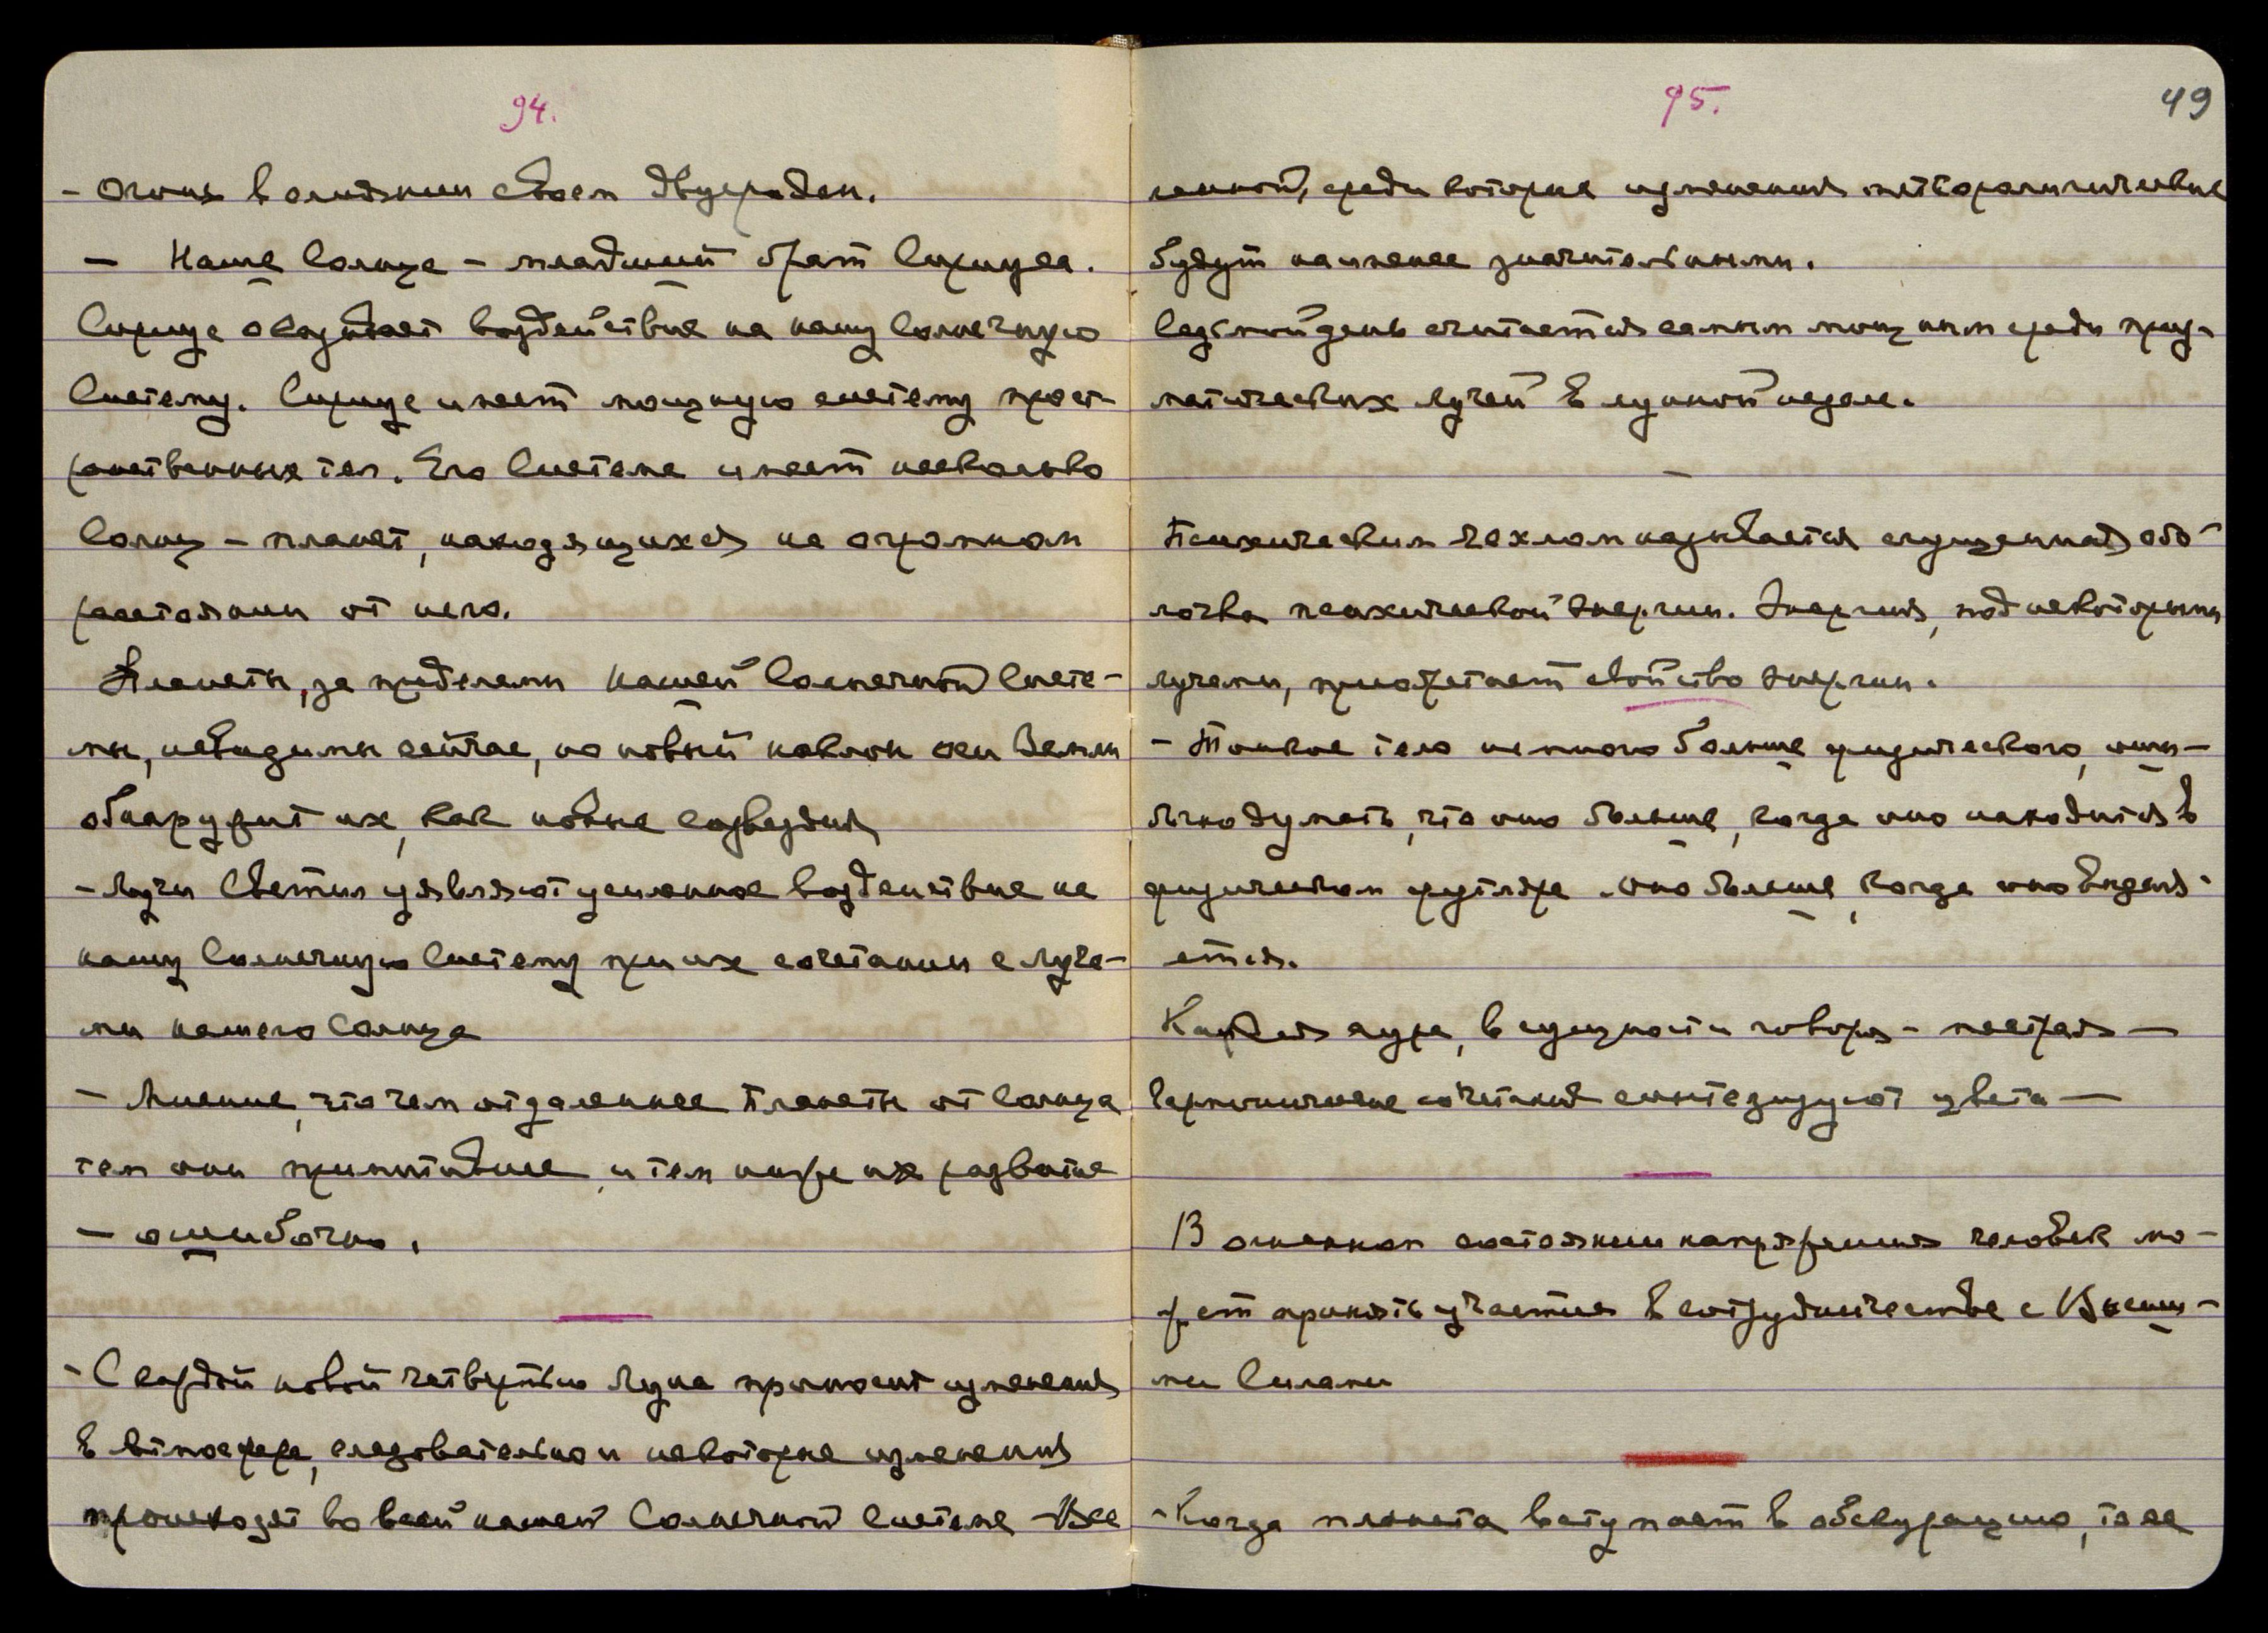 94.
- Огонь в слиянии своем двуроден.
— Наше Солнце – младший брат Сириуса.
Сириус оказывает воздействие на нашу Солнечную
Систему. Сириус имеет мощную систему прост-
ранственных тел. Его Система имеет несколько
Солнц – планет, находящихся на огромном
расстоянии от него.
Планеты, за пределами нашей Солнечной Систе-
мы, невидимы сейчас, но новый наклон оси Земли
обнаружит их, как новые созвездия
- Лучи Светил уявляют усиленное воздействие на
нашу Солнечную Систему при их сочетании с Луча-
ми нашего Солнца
- Мнение, что чем отдаленнее Планеты от Солнца
тем они примитивнее, и тем ниже их развитие
— ошибочно.
- С каждой новой четвертью Луна приносит изменения
в Атмосфере, следовательно и некоторые изменения
происходят во всей нашей Солнечной Системе – Все
95.
49
ленной, среди которые изменения метеорологические
будут наименее значительными.
Седьмой день считается самым мощным среди приз-
матических лучей в лунной неделе.
—
Психическим чехлом называется сгущенная обо-
лочка психической энергии. Энергия, под некоторыми
лучами, приобретает свойство энергии.
- Тонкое тело немного больше физического, оши-
бочно думать, что оно больше, когда оно находится в
физическом футляре. Оно больше, когда оно выделя-
ется.
Каждая аура, в сущности говоря – пестрая —
Гармоничные сочетания синтезируют цвета —
В огненном состоянии напряжения человек мо-
жет принять участие в сотрудничестве с Высши-
ми Силами
- Когда планета вступает в обскурацию, то ее